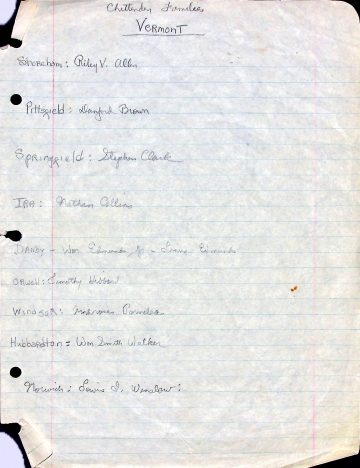 Chittenden Families
VERMONT
Shoreham: Riley V. Allen
Pittsfield: Danford Brown
Springfield: Stephen Clark
IRA: Nathan Collins
DANBY - Wm Edmunds Jr - Edmunds
ORWELL: Timothy Hibbard
WINDSOR: Parmelee
Hubbardton = Wm Smith Walker
Norwich: Lewis S. Winslow